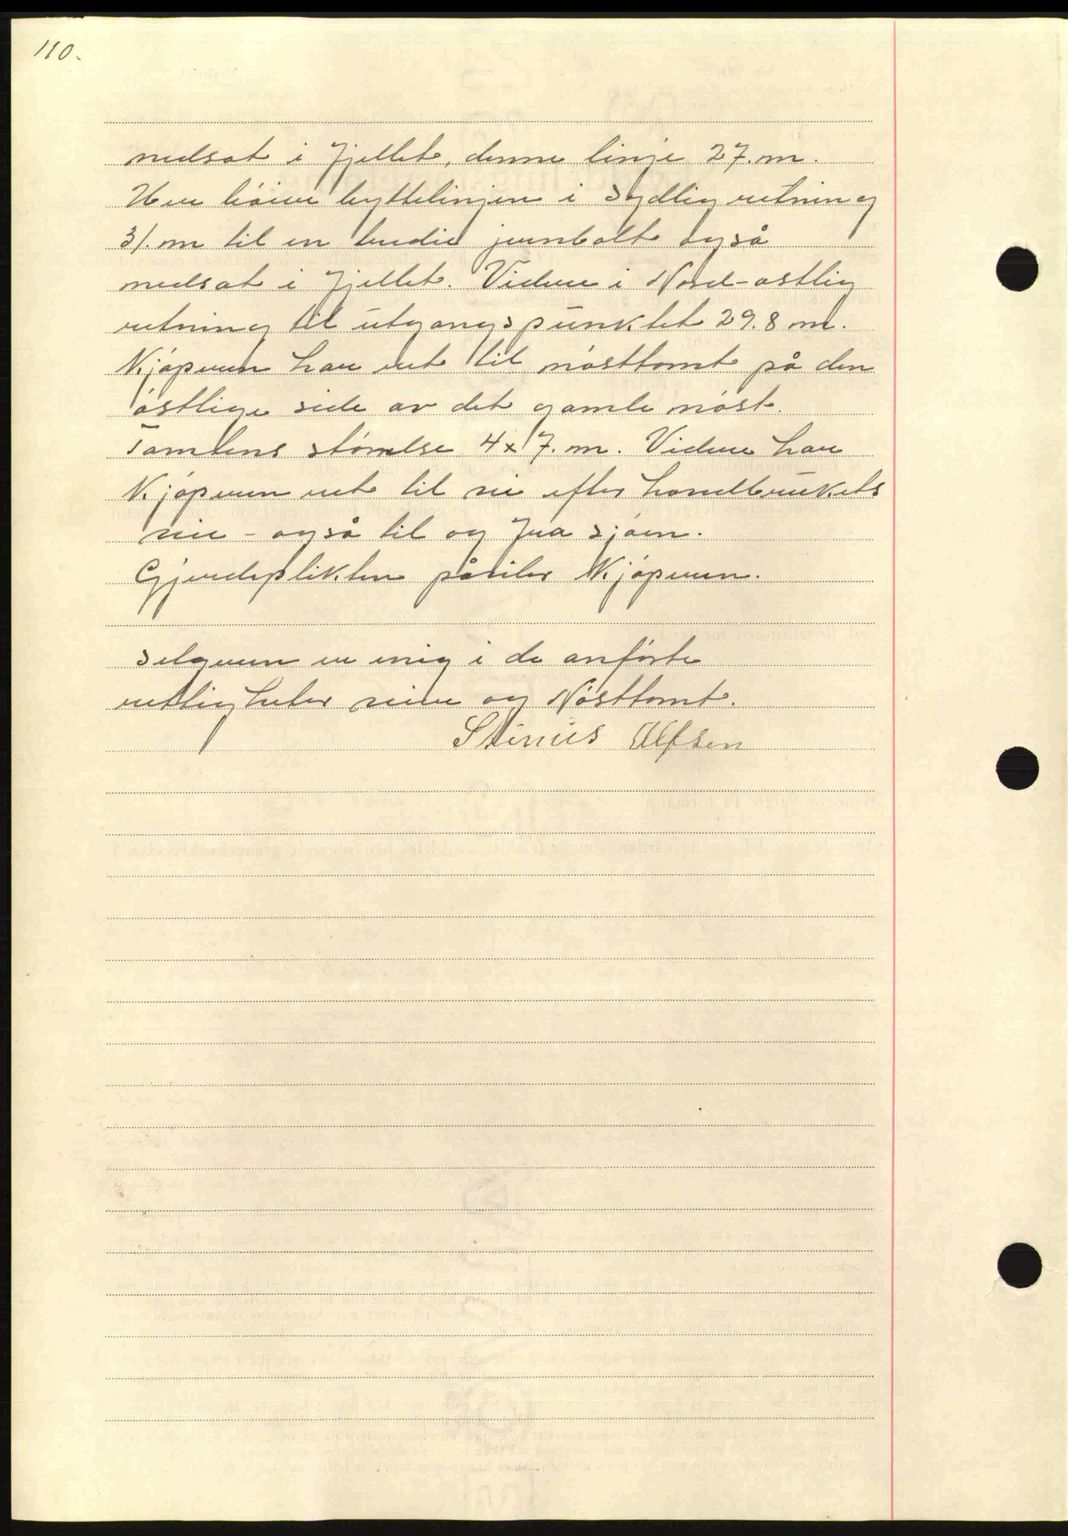 110.
nedsat i fjellet, denne linje 27. m.
Her bøier byttelinjen i sydlig retning
31. m til en tredie jernbolt også
nedsat i fjellet. Videre i Nord-østlig
retning til utgangspunktet 29.8 m.
Kjøperen har ret til nøsttomt på den
østlige side av det gamle nøst.
Tomtens størrelse 4x7. m. Videre har
Kjøperen ret til vei efter hovedbrukets
vei - også til og fra sjøen.
Gjerdeplikten påviler Kjøperen.
Selgeren er enig i de anførte
rettigheter veier og Nøsttomt.
Stinius Alfsen